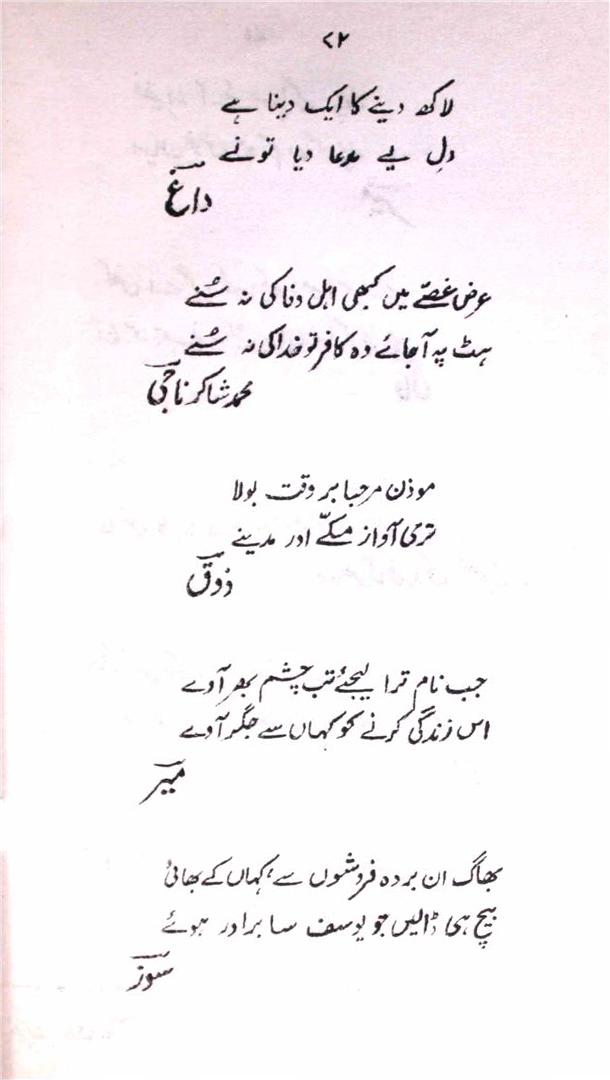 ۷۲
لاکھ دینے کا ایک دینا ہے
دلِ بے مدعا دیا تو نے
داغ
عرض غصّے میں کبھی اہل وفا کی نہ سُنے
ہٹ پہ آجائے وہ کافر تو خدا کی نہ سُنے
محمد شاکر ناجی
موذن مرحبا بر وقت بولا
تری آواز مکّے اور مدینے
ذوق
جب نام ترا لیجئے تب چشم بھر آوے
اس زندگی کرنے کو کہاں سے جگر آوے
میر
بھاگ ان بردہ فروشوں سے، کہاں کے بھائی
بیچ ہی ڈالیں جو یوسف سا برادر ہوئے
سوز